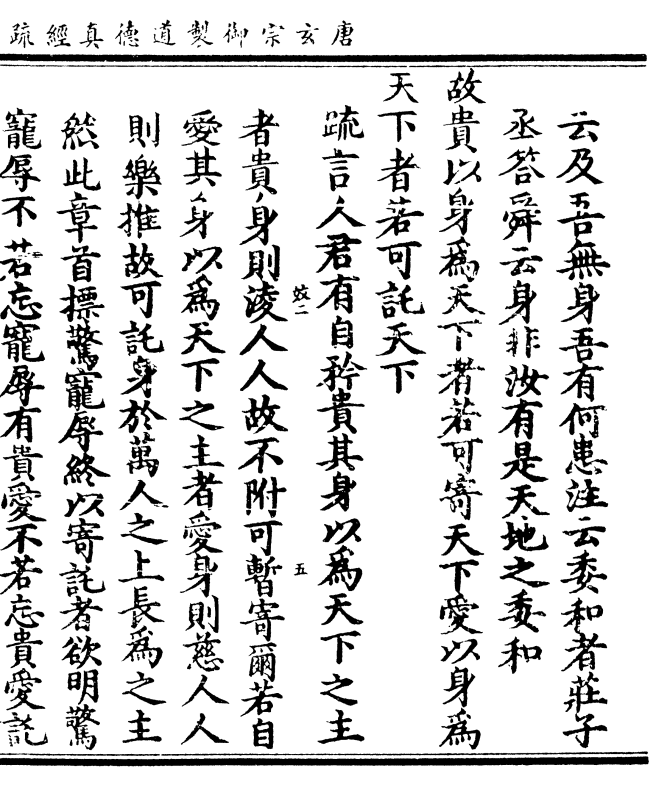 唐玄宗御製道德真經疏
云及吾無身吾有何患注云委和者莊子
丞答舜云身非汝有是天地之委和
故貴以身為天下者若可寄天下愛以身為
天下者若可託天下
疏言人君有自矜貴其身以為天下之主
者貴身則淩人人故不附可暫寄爾若自
效二
五
愛其身以為天下之主者愛身則慈人人
則樂推故可託身於萬人之上長為之主
然此章首摽驚寵辱終以寄託者欲明驚
寵辱不若忘寵辱有貴愛不若忘貴愛託